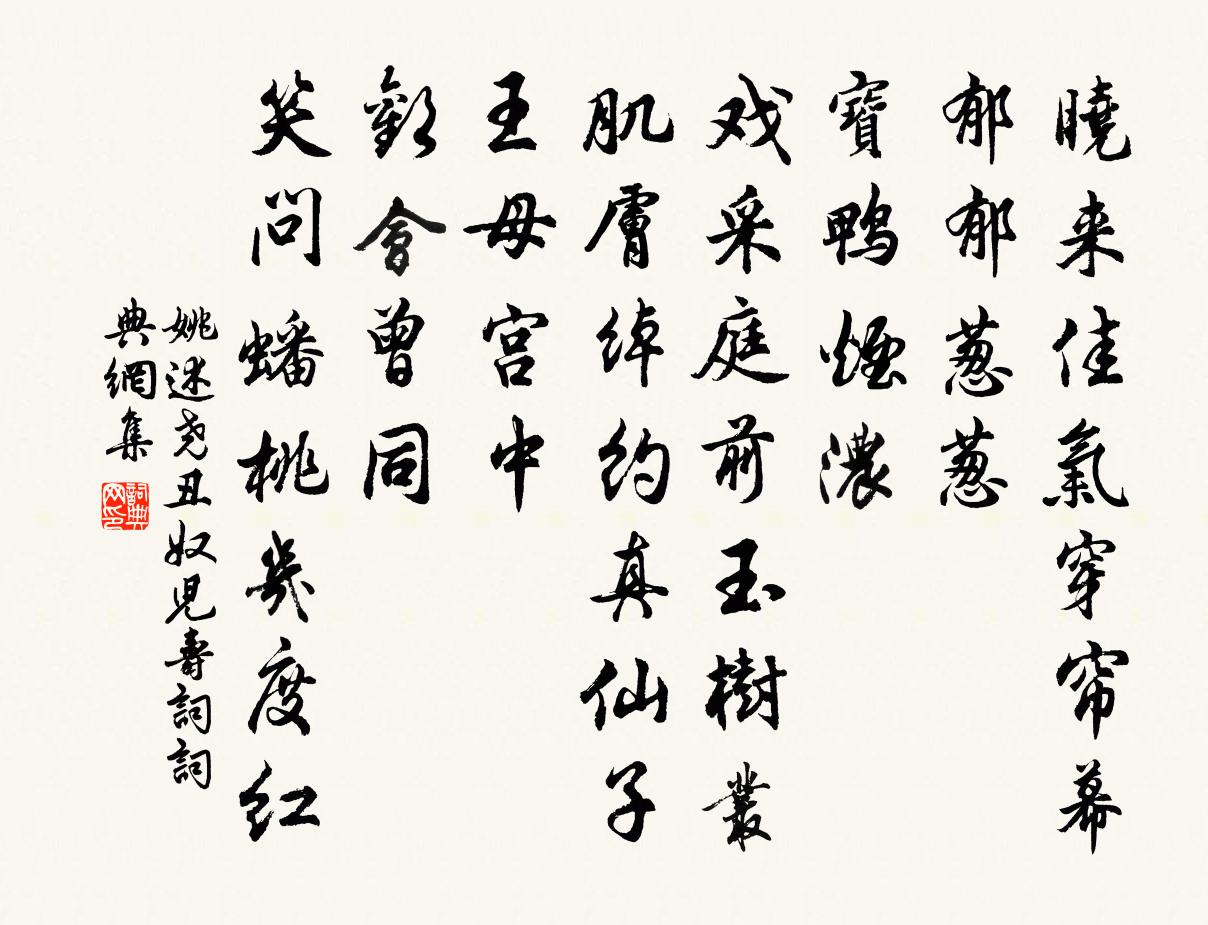 曉来佳氣穿帘幕
郁郁葱葱
寶鴨煙濃
戏采庭前玉樹叢
肌膚绰约真仙子
王母宫中
歡會曾同
笑問蟠桃幾度红
姚述尧丑奴児壽詞詞
典網集
詞典
网印